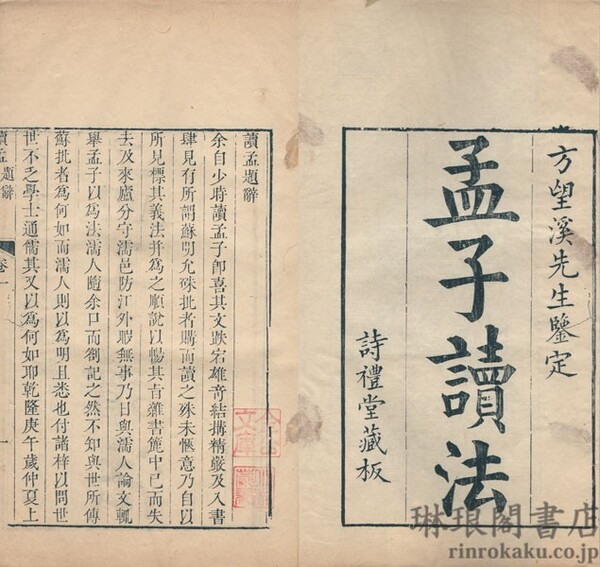 方望溪先生鑒定
孟子讀法
詩禮堂藏板
讀孟題辭
余自少時讀孟子卽喜其文跌宕雄竒結搆精嚴及入書
肆見有所謂蘇明允硃批者購而讀之殊未愜意乃自以
所見標其義法并爲之順說以暢其旨雜書簏中已而失
去及來廬分守濡邑防江外暇無事乃日與濡人論文輒
舉孟子以爲法濡人隨余口而劄記之然不知與世所傳
蘇批者爲何如而濡人則以爲明且悉也付諸梓以問世
世不之學士通儒其又以爲何如耶乾隆庚午歲仲夏上
讀孟題辭 卷一 一
琳琅閣書店
rinrokaku.co.jp